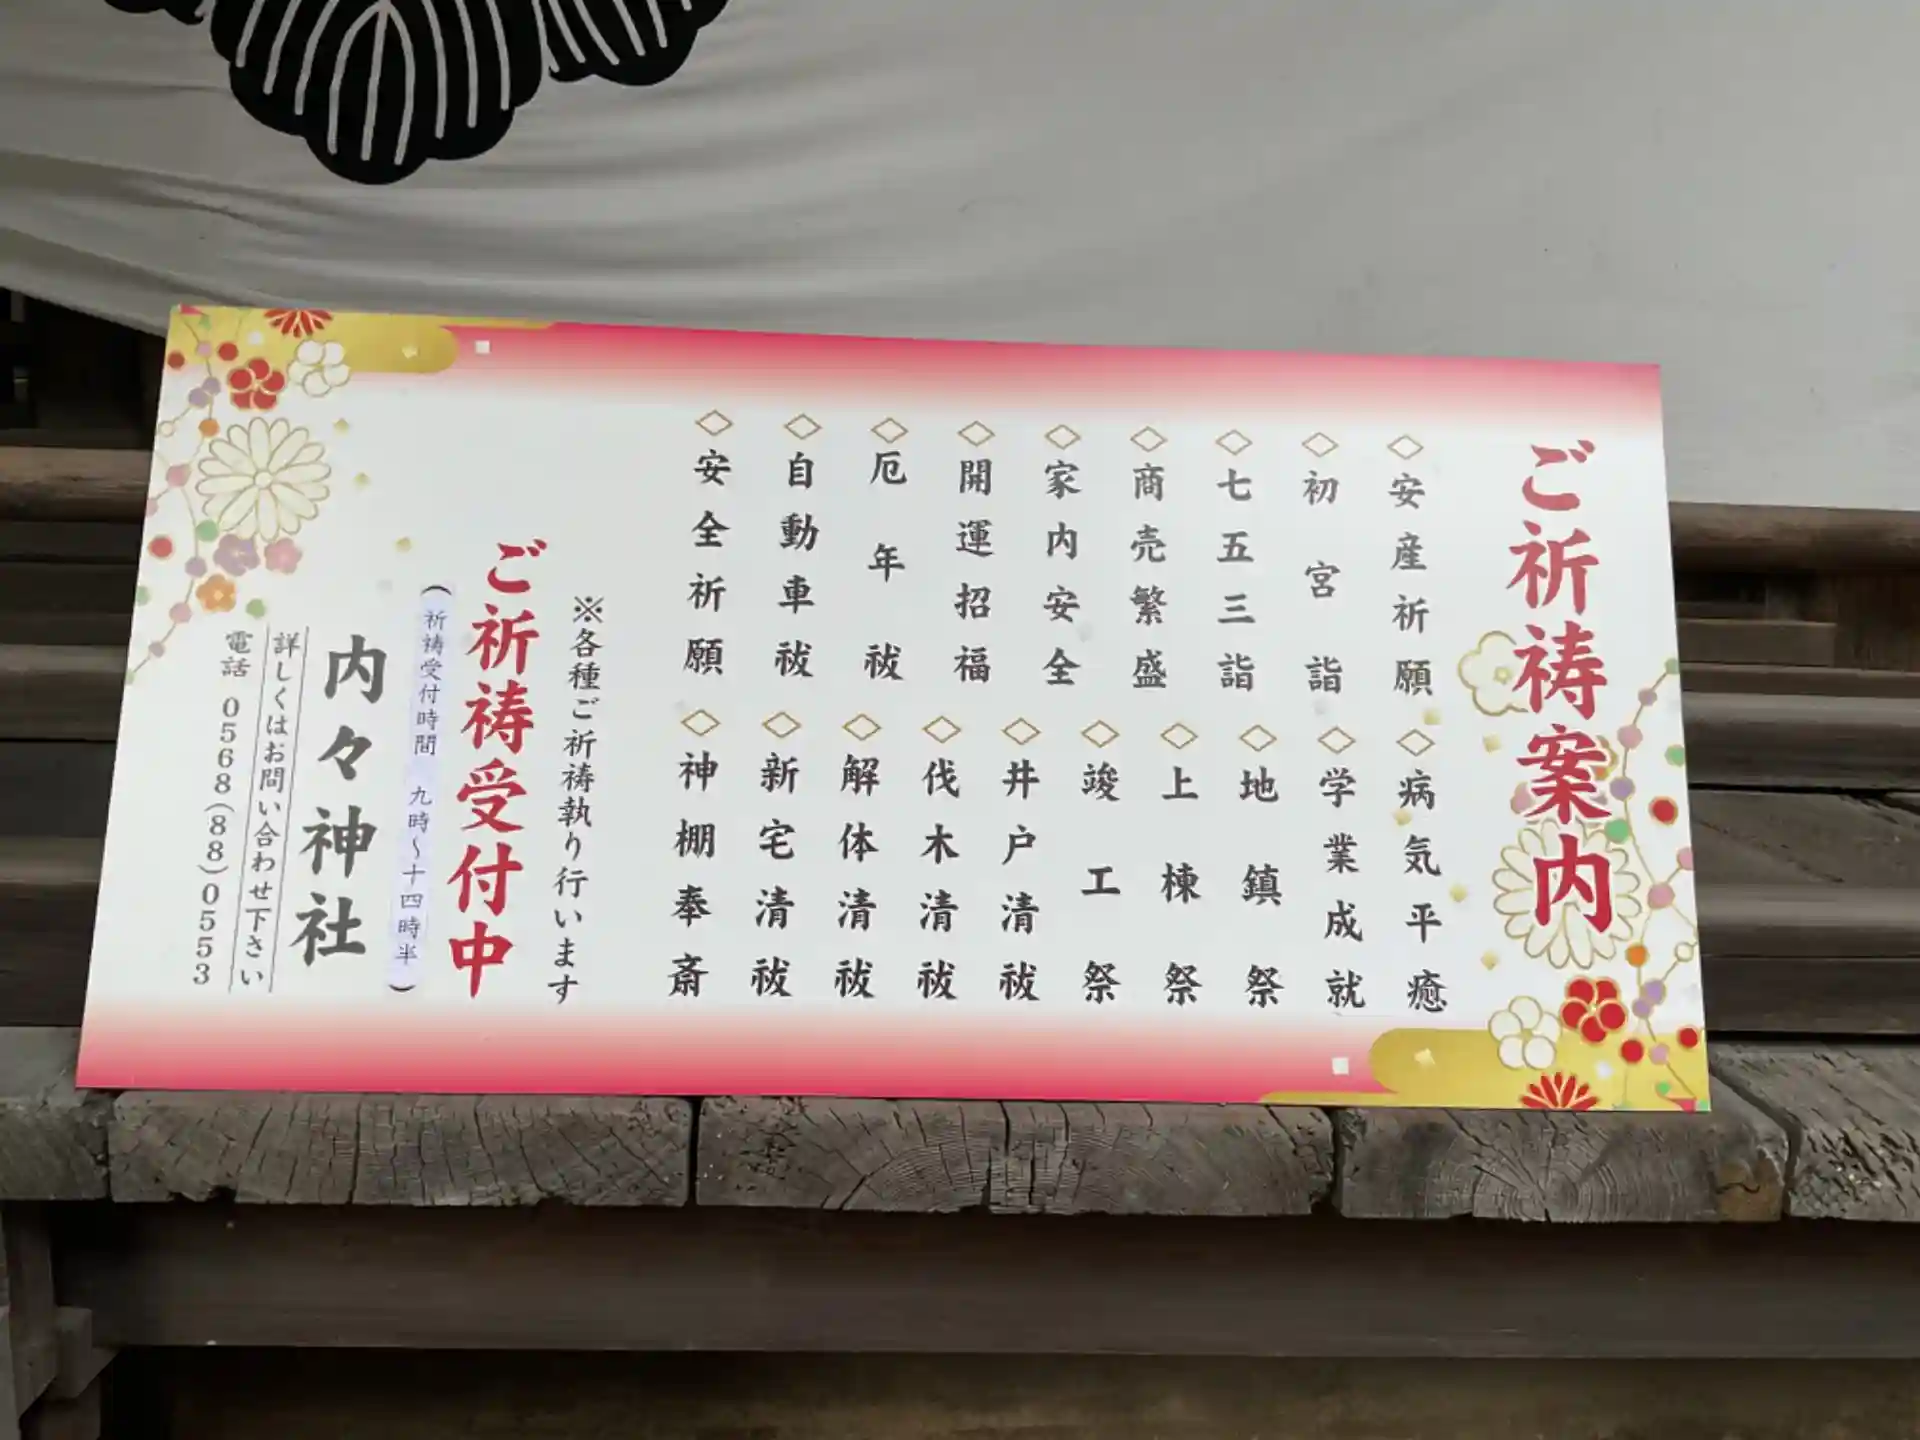 ご祈祷案内
◇安産祈願
◇初宮詣
◇七五三詣
◇商売繁盛
◇家内安全
◇開運招福
◇厄年祓
◇自動車祓
◇安全祈願
◇病気平癒
◇学業成就
◇地鎮祭
◇上棟祭
◇竣工祭
◇井戸清祓
◇伐木清祓
◇解体清祓
◇新宅清祓
◇神棚奉斎
※各種ご祈祷執り行います
ご祈祷受付中
(祈祷受付時間 九時~十四時半)
内々神社
詳しくはお問い合わせ下さい
電話 0568(88)0553